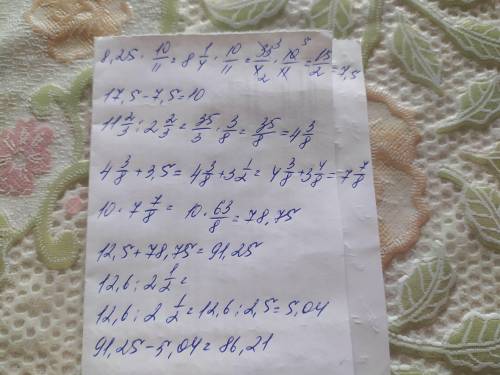 8,25 · 10/11 = 8 1/4 · 10/11 = 33³/4₂ · 10⁵/11 = 15/2 = 7,5
17,5 - 7,5 = 10
11 2/3 : 2 2/3 = 35/3 · 3/8 = 35/8 = 4 3/8
4 3/8 + 3,5 = 4 3/8 + 3 1/2 = 4 3/8 + 3 4/8 = 7 7/8
10 · 7 7/8 = 10 · 63/8 = 78,75
12,5 + 78,75 = 91,25
12,6 : 2 1/2 =
12,6 : 2 1/2 = 12,6 : 2,5 = 5,04
91,25 - 5,04 = 86,21